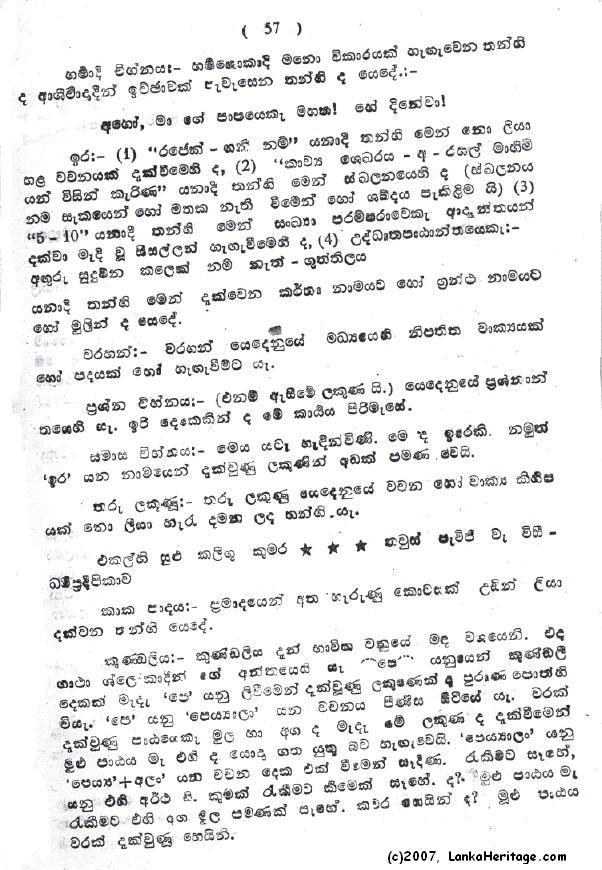 ( 57 )
හර්‍ෂාදි චිහ්නය:- හර්‍ෂශොකාදි මනො විකාරයක් හැඟැවෙන තන්හි
ද ආශිර්‍වාදාදීන් ඉච්ඡාවක් පැවැසෙන තන්හි ද යෙදේ.:-
අහෝ, මා ගේ පාපයෙකැ මහත! ගේ දිනේවා!
ඉර:- (1) "රජෙක් - නම්" යනාදි තන්හි මෙන් නො ලියා
හළ වචනයක් දැක්වීමෙහි ද, (2) "කාව්‍ය ශෙඛරය - අ - රහල් මාහිමි
යන් විසින් කැරිණ" යනාදි තන්හි මෙන් ස්ඛලනයෙහි ද (ස්ඛලනය
නම් සැකයෙන් හෝ මතක නැති වීමෙන් හෝ ශබ්දය පැකිළීම යි) (3)
"5 - 10" යනාදි තන්හි මෙන් සංඛ්‍යා පරම්පරාවෙකැ ආද්‍යන්තයන්
දක්වා මැදි වූ සියල්ලන් හැඟැවීමෙහි ද, (4) උද්ධෘතපාඨාන්තයෙකැ:-
අඟුරු සුදුවන කලෙක් නම් නැත් - ගුත්තිලය
යනාදි තන්හි මෙන් දැක්වෙන කර්තෘ නාමයට හෝ ග්‍රන්ථ නාමයට
හෝ මුලින් ද යෙදේ.
වරහන්:- වරහන් යෙදෙනුයේ මධ්‍යයෙහි නිපතිත වාක්‍යයක්
හෝ පදයක් හෝ හැඟැවීමට යැ.
ප්‍රශ්න චිහ්නය:- (එනම් ඇසීමේ ලකුණ යි.) යෙදෙනුයේ ප්‍රශ්නාන්
තයෙහි යැ. ඉරි දෙකෙකින් ද මේ කාර්‍ය්‍යය පිරිමැසේ.
සමාස චිහ්නය:- මෙය යටැ හැදින්විණි. මේ ද ඉරෙකි. නමුත්
'ඉර' යන නාමයෙන් දැක්වුණු ලකුණින් අඩක් පමණ වෙයි.
තරු ලකුණු:- තරු ලකුණු යෙදෙනුයේ වචන හෝ වාක්‍ය කිහිප
යක් නො ලියා හැරැ දමන ලද තන්හි යැ.
එකල්හි සුළු කලිඟු කුමර ★ ★ ★ තවුස් පැවිජි වැ විසී -
ධර්‍මප්‍රදීපිකාව
කාක පාදය:- ප්‍රමාදයෙන් අත හැරුණු කොටසක් උඩින් ලියා
දක්වන තන්හි යෙදේ.
කුණ්ඩලිය:- කුණ්ඩලිය දැන් භාවිත වනුයේ මඳ වශයෙනි. එද
ගාථා ශ්ලොකාදීන් ගේ අන්තයෙයි යැ "පෙ" යනුයෙන් කුණ්ඩලී
දෙකක් මැදැ 'පෙ' යනු ලිවීමෙන් දැක්වුණු ලකුණෙක් ද පුරාණ පොත්හි
වියැ. 'පෙ' යනු 'පෙය්‍යාලං' යන වචනය පිණිස සිටියේ යැ. වරක්
දැක්වුණු පාඨයෙකැ මුල හා අග ද මැදැ මේ ලකුණ ද දැක්වීමෙන්
මුළු පාඨය මැ එහි ද යොදා ගත යුතු බව හැඟැවෙයි. 'පෙය්‍යාලං' යනු
'පෙය්‍ය' + අලං' යන වචන දෙක එක් වීමෙන් සෑදිණ. රැකීමට සෑහේ,
යනු එහි අර්ථ යි. කුමක් රැකීමට කීමෙක් සෑහේ. ද? මුළු පාඨය මැ
රැකීමට එහි අග මුල පමණක් සෑහේ. කවර හෙයින් ද? මුළු පාඨය
වරක් දැක්වුණු හෙයිනි.
(c)2007, LankaHeritage.com